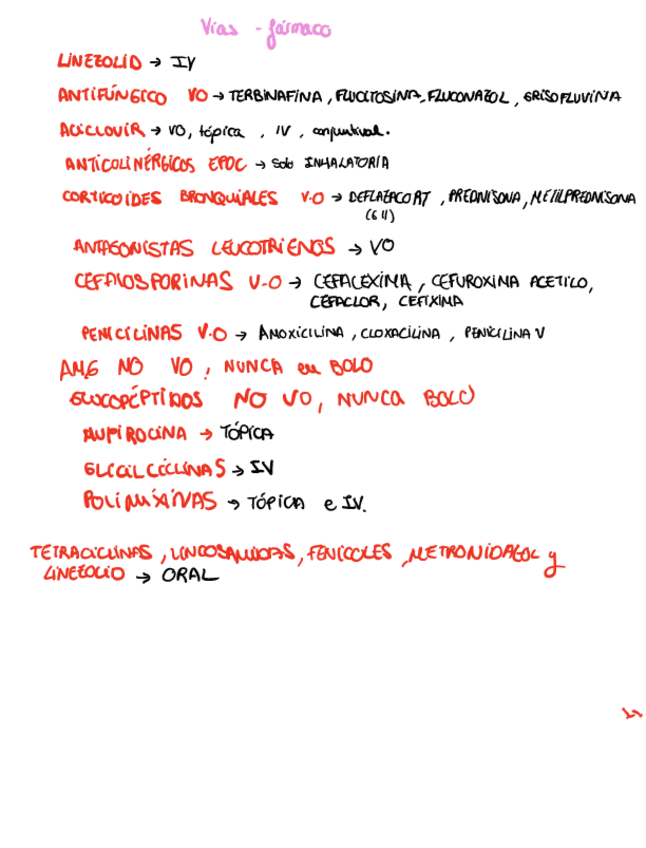 Vías - fármaco
LINEZOLID → IV
ANTIFÚNGICO VO → TERBINAFINA, FLUCITOSINA, FLUCONAZOL, GRISOFLUVINA
ACICLOVIR → VO, tópica, IV, conjuntival.
ANTICOLINÉRGICOS EPOC → solo INHALATORIA
CORTICOIDES BRONQUIALES V.O → DEFLAZACORT, PREDNISONA, METILPREDNISONA
ANTAGONISTAS LEUCOTRIENOS → VO
CEFALOSPORINAS V.O → CEFALEXIMA, CEFUROXINA ACETILO,
CEFACLOR, CEFIXIMA
PENICILINAS V.O → AMOXICILINA, CLOXACILINA, PENICILINA V
AMG NO VO, NUNCA en BOLO
GLUCOPÉPTIDOS NO VO, NUNCA BOLO
MUPIROCINA → TÓPICA
GLICILCICLINAS → IV
POLIMIXINAS → TÓPICA e IV.
TETRACICLINAS, LINCOSAMIDAS, FENICOLES, METRONIDAZOL y
LINEZOLID → ORAL